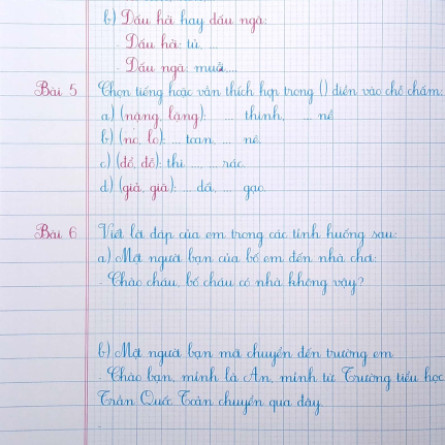 b) Dấu hỏi hay dấu ngã:
- Dấu hỏi: tủ ...
- Dấu ngã: muỗ...
Bài 5 Chọn tiếng hoặc vần thích hợp trong () điền vào chỗ chấm:
a) (nặng, lặng): ... thinh, ... nề
b) (no, lo): ... toan, ... nê
c) (đổ, đỗ): thi ..., ... rác
d) (giả, giã): ... da, ... gạo
Bài 6 Viết lời đáp của em trong các tình huống sau:
a) Một người bạn của bố em đến nhà chơi:
- Chào cháu, bố cháu có nhà không vậy?
b) Một người bạn mới chuyển đến trường em
- Chào bạn, mình là An, mình từ Trường tiểu học
Trần Quốc Toản chuyển qua đây.